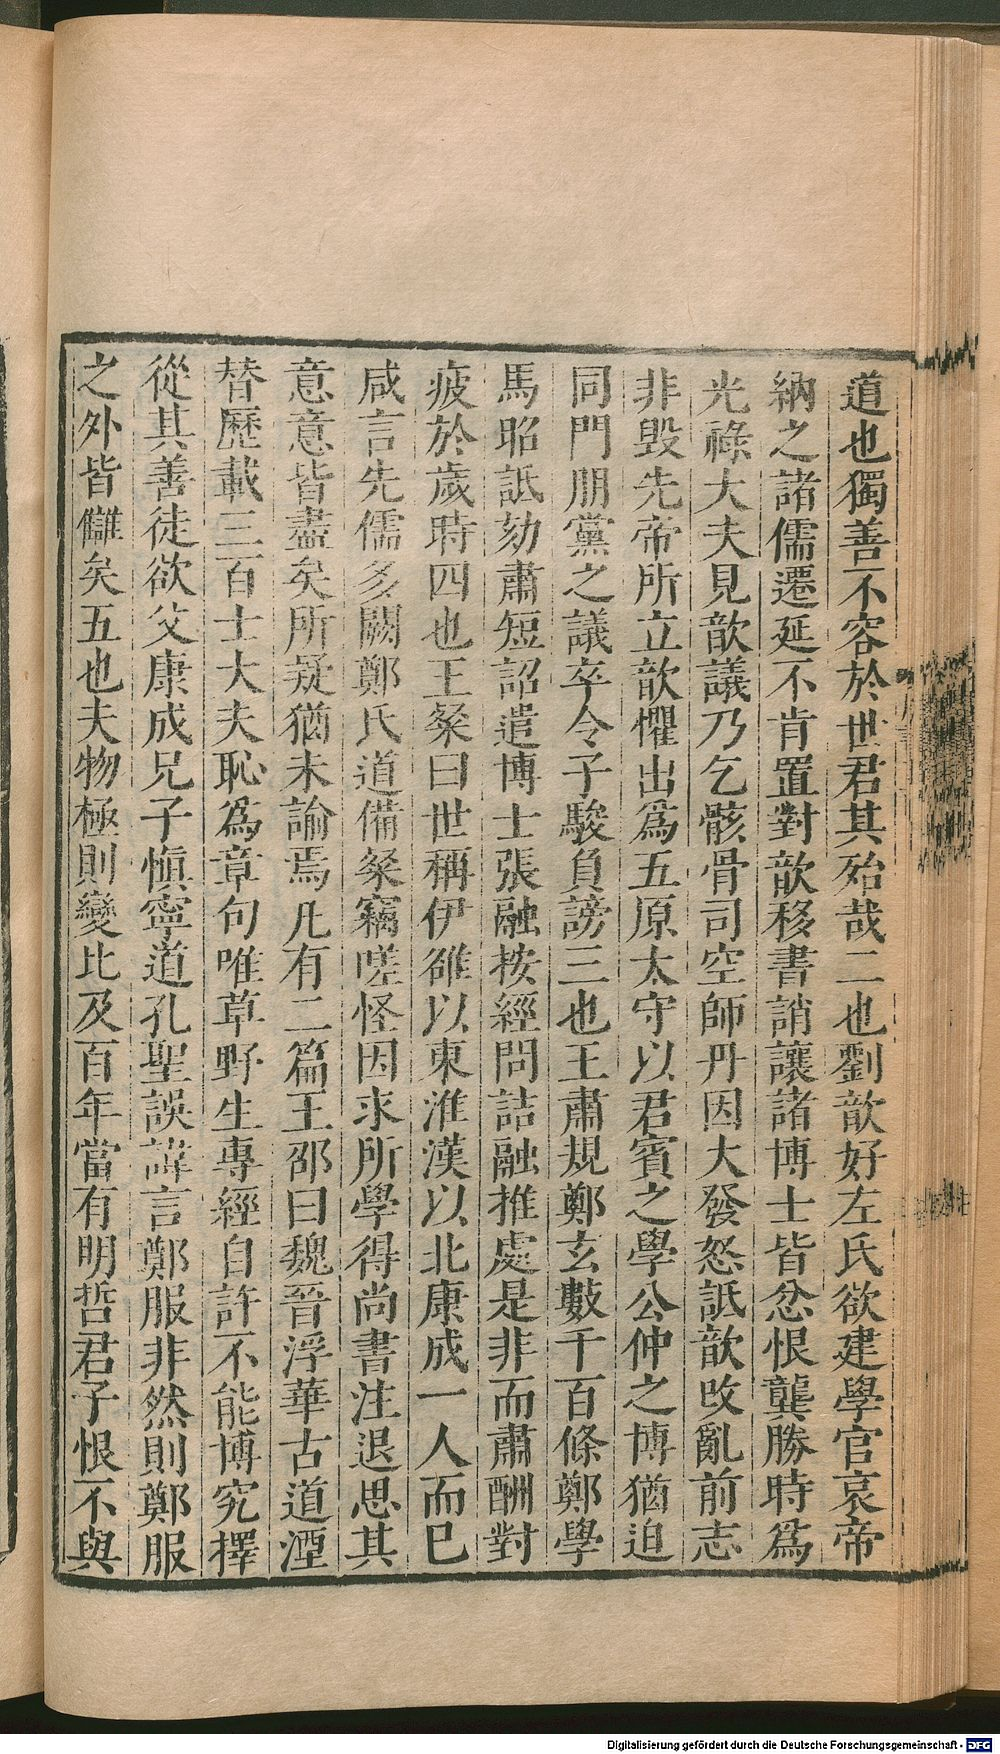 道也獨善不容於世君其殆哉二也劉歆好左氏欲建學官哀帝
納之諸儒遷延不肯置對歆移書誚讓諸博士皆忿恨龔勝時爲
光祿大夫見歆議乃乞骸骨司空師丹因大發怒詆歆改亂前志
非毀先帝所立歆懼出爲五原太守以君賓之學公仲之博猶迫
同門朋黨之議卒令子駿負謗三也王肅規鄭玄數千百條鄭學
馬昭詆劾肅短詔遣博士張融按經問詰融推處是非而肅酬對
疲於歲時四也王粲曰世稱伊雒以東淮漢以北康成一人而已
咸言先儒多闕鄭氏道備粲竊嗟怪因求所學得尚書注退思其
意意皆盡矣所疑猶未諭焉凡有二篇王邵曰魏晉浮華古道湮
替歷載三百士大夫恥爲章句唯草野生專經自許不能博究擇
從其善徒欲父康成兄子慎寧道孔聖誤諱言鄭服非然則鄭服
之外皆讎矣五也夫物極則變比及百年當有明哲君子恨不與
Digitalisierung gefördert durch die Deutsche Forschungsgemeinschaft - DFG